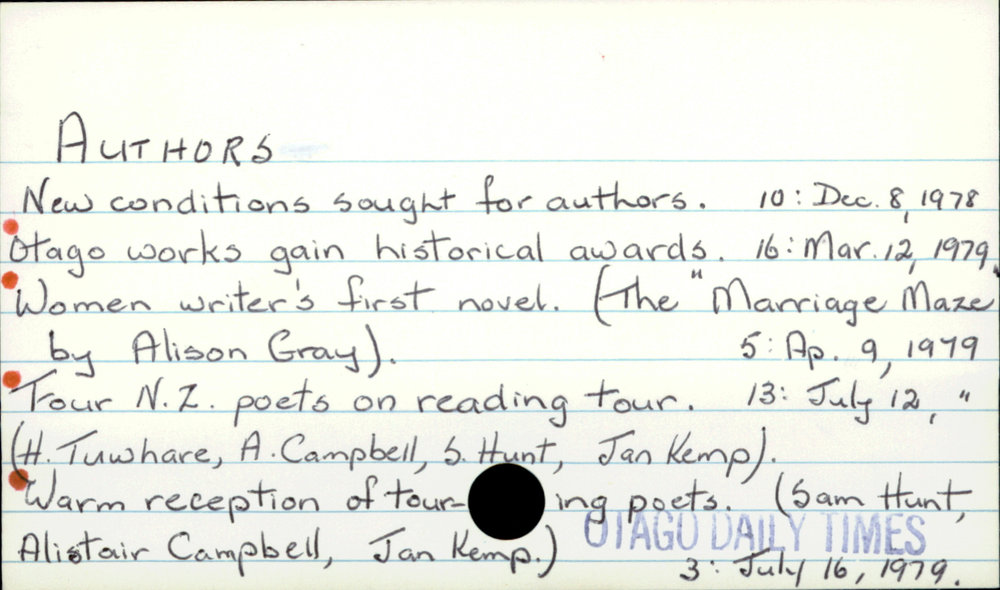 AUTHORS
New conditions sought for authors. 10: Dec. 8, 1978
Otago works gain historical awards. 16: Mar. 12, 1979
Women writer's first novel. (The "Marriage Maze"
by Alison Gray). 5: Ap. 9, 1979
Four N.Z. poets on reading tour. 13: July 12, "
(H. Tuwhare, A. Campbell, S. Hunt, Jan Kemp).
Warm reception of tour-ing poets. (Sam Hunt,
Alistair Campbell, Jan Kemp.) OTAGO DAILY TIMES
3: July 16, 1979.